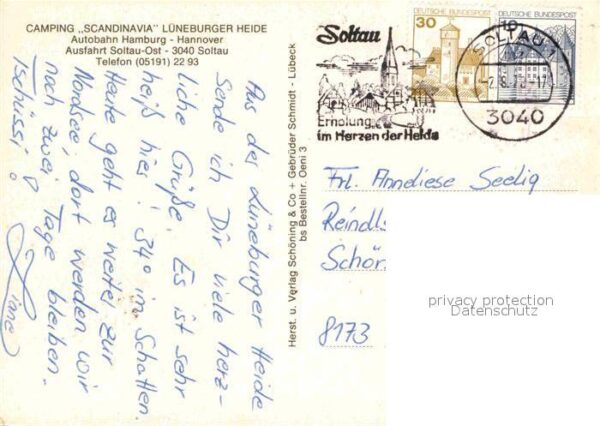 CAMPING „SCANDINAVIA" LÜNEBURGER HEIDE
Autobahn Hamburg - Hannover
Ausfahrt Soltau-Ost - 3040 Soltau
Telefon (05191) 22 93
Aus der Lüneburger Heide
sende ich Dir viele herz-
liche Grüße. Es ist sehr
heiß hier! 34° im Schatten.
Heute geht es weiter zur
Nordsee, dort werden wir
noch zwei Tage bleiben.
Tschüssi!
Herst. u. Verlag Schöning & Co + Gebrüder Schmidt - Lübeck
bs Bestellnr. Oeni 3
Soltau
Erholung
im Herzen der Heide
DEUTSCHE BUNDESPOST
30
DEUTSCHE BUNDESPOST
10
SOLTAU
3040
Frl. Anneliese Seelig
Reindls
Schör
8173
privacy protection
Datenschutz